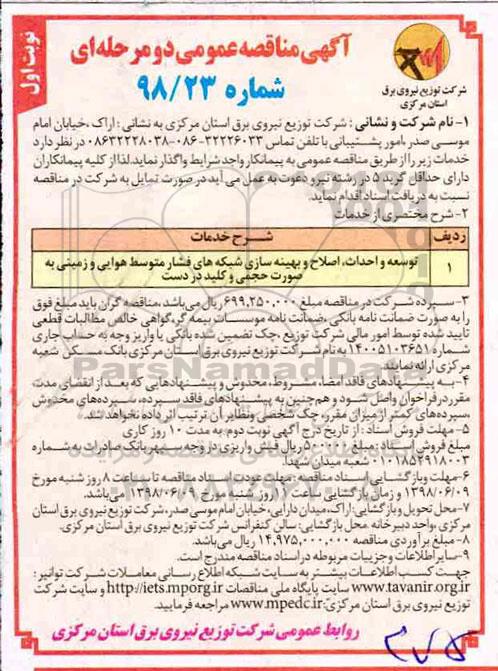 نوبت اول
آگهی مناقصه عمومی دو مرحله‌ای
شماره ۹۸/۲۳
شرکت توزیع نیروی برق
استان مرکزی
۱- نام شرکت و نشانی : شرکت توزیع نیروی برق استان مرکزی به نشانی : اراک ،خیابان امام
موسی صدر ،امور پشتیبانی با تلفن تماس ۳۲۲۲۶۰۳۳-۰۸۶ ۰۸۶۳۲۲۲۸۰۳۸ در نظر دارد
خدمات زیر را از طریق مناقصه عمومی به پیمانکار واجد شرایط واگذار نماید.لذا از کلیه پیمانکاران
دارای حداقل گرید ۵ در رشته نیرو دعوت به عمل می آید در صورت تمایل به شرکت در مناقصه
نسبت به دریافت اسناد اقدام نماید.
۲- شرح مختصری از خدمات
ردیف شرح خدمات
۱ توسعه و احداث، اصلاح و بهینه سازی شبکه های فشار متوسط هوایی و زمینی به
صورت حجمی و کلید در دست
۳- سپرده شرکت در مناقصه مبلغ ۶۹۹,۲۵۰,۰۰۰ ریال می‌باشد،مناقصه گران باید مبلغ فوق
را به صورت ضمانت نامه بانکی ،ضمانت نامه موسسات بیمه گر،گواهی خالص مطالبات قطعی
تایید شده توسط امور مالی شرکت توزیع ،چک تضمین شده بانکی یا واریز وجه به حساب جاری
شماره ۱۴۰۰۵۱۰۳۶۵۱ به نام شرکت توزیع نیروی برق استان مرکزی بانک مسکن شعبه
مرکزی ارائه نمایند.
۴- به پیشنهادهای فاقد امضا، مشروط، مخدوش و پیشنهادهایی که بعد از انقضای مدت
مقرر در فراخوان واصل شود و هم چنین به پیشنهادهای فاقد سپرده، سپرده‌های مخدوش
،سپرده‌های کمتر از میزان مقرر، چک شخصی ونظایر آن ترتیب اثر داده نخواهد شد.
۵- مهلت فروش اسناد : از تاریخ درج آگهی نوبت دوم، به مدت ۱۰ روز کاری
مبلغ فروش اسناد : مبلغ ۵۰۰,۰۰۰ ریال فیش واریزی در وجه سپهر بانک صادرات به شماره
۰۱۰۱۸۵۳۹۱۸۰۰۳ شعبه میدان شهدا.
۶-مهلت و بازگشایی اسناد مناقصه: مهلت عودت اسناد مناقصه تا ساعت ۸ روز شنبه مورخ
۱۳۹۸/۰۶/۰۹ و زمان بازگشایی ساعت ۱۰ روز شنبه مورخ ۱۳۹۸/۰۶/۰۹ می‌باشد.
۷-محل تحویل و بازگشایی: اراک، میدان دارایی، خیابان امام موسی صدر، شرکت توزیع برق استان
مرکزی ،واحد دبیرخانه محل بازگشایی: سالن کنفرانس شرکت توزیع نیروی برق استان مرکزی.
۸-مبلغ برآوردی مناقصه ۱۴,۹۷۵,۰۰۰,۰۰۰ ریال می‌باشد.
۹-سایر اطلاعات و جزییات مربوطه در اسناد مناقصه مندرج است.
جهت کسب اطلاعات بیشتر به سایت شبکه اطلاع رسانی معاملات شرکت توانیر :
www.tavanir.org.ir سایت پایگاه ملی مناقصات http://iets.mporg.ir و سایت شرکت
توزیع نیروی برق استان مرکزی: www.mpedc.ir مراجعه فرمایید.
روابط عمومی شرکت توزیع نیروی برق استان مرکزی
ParsNamadData